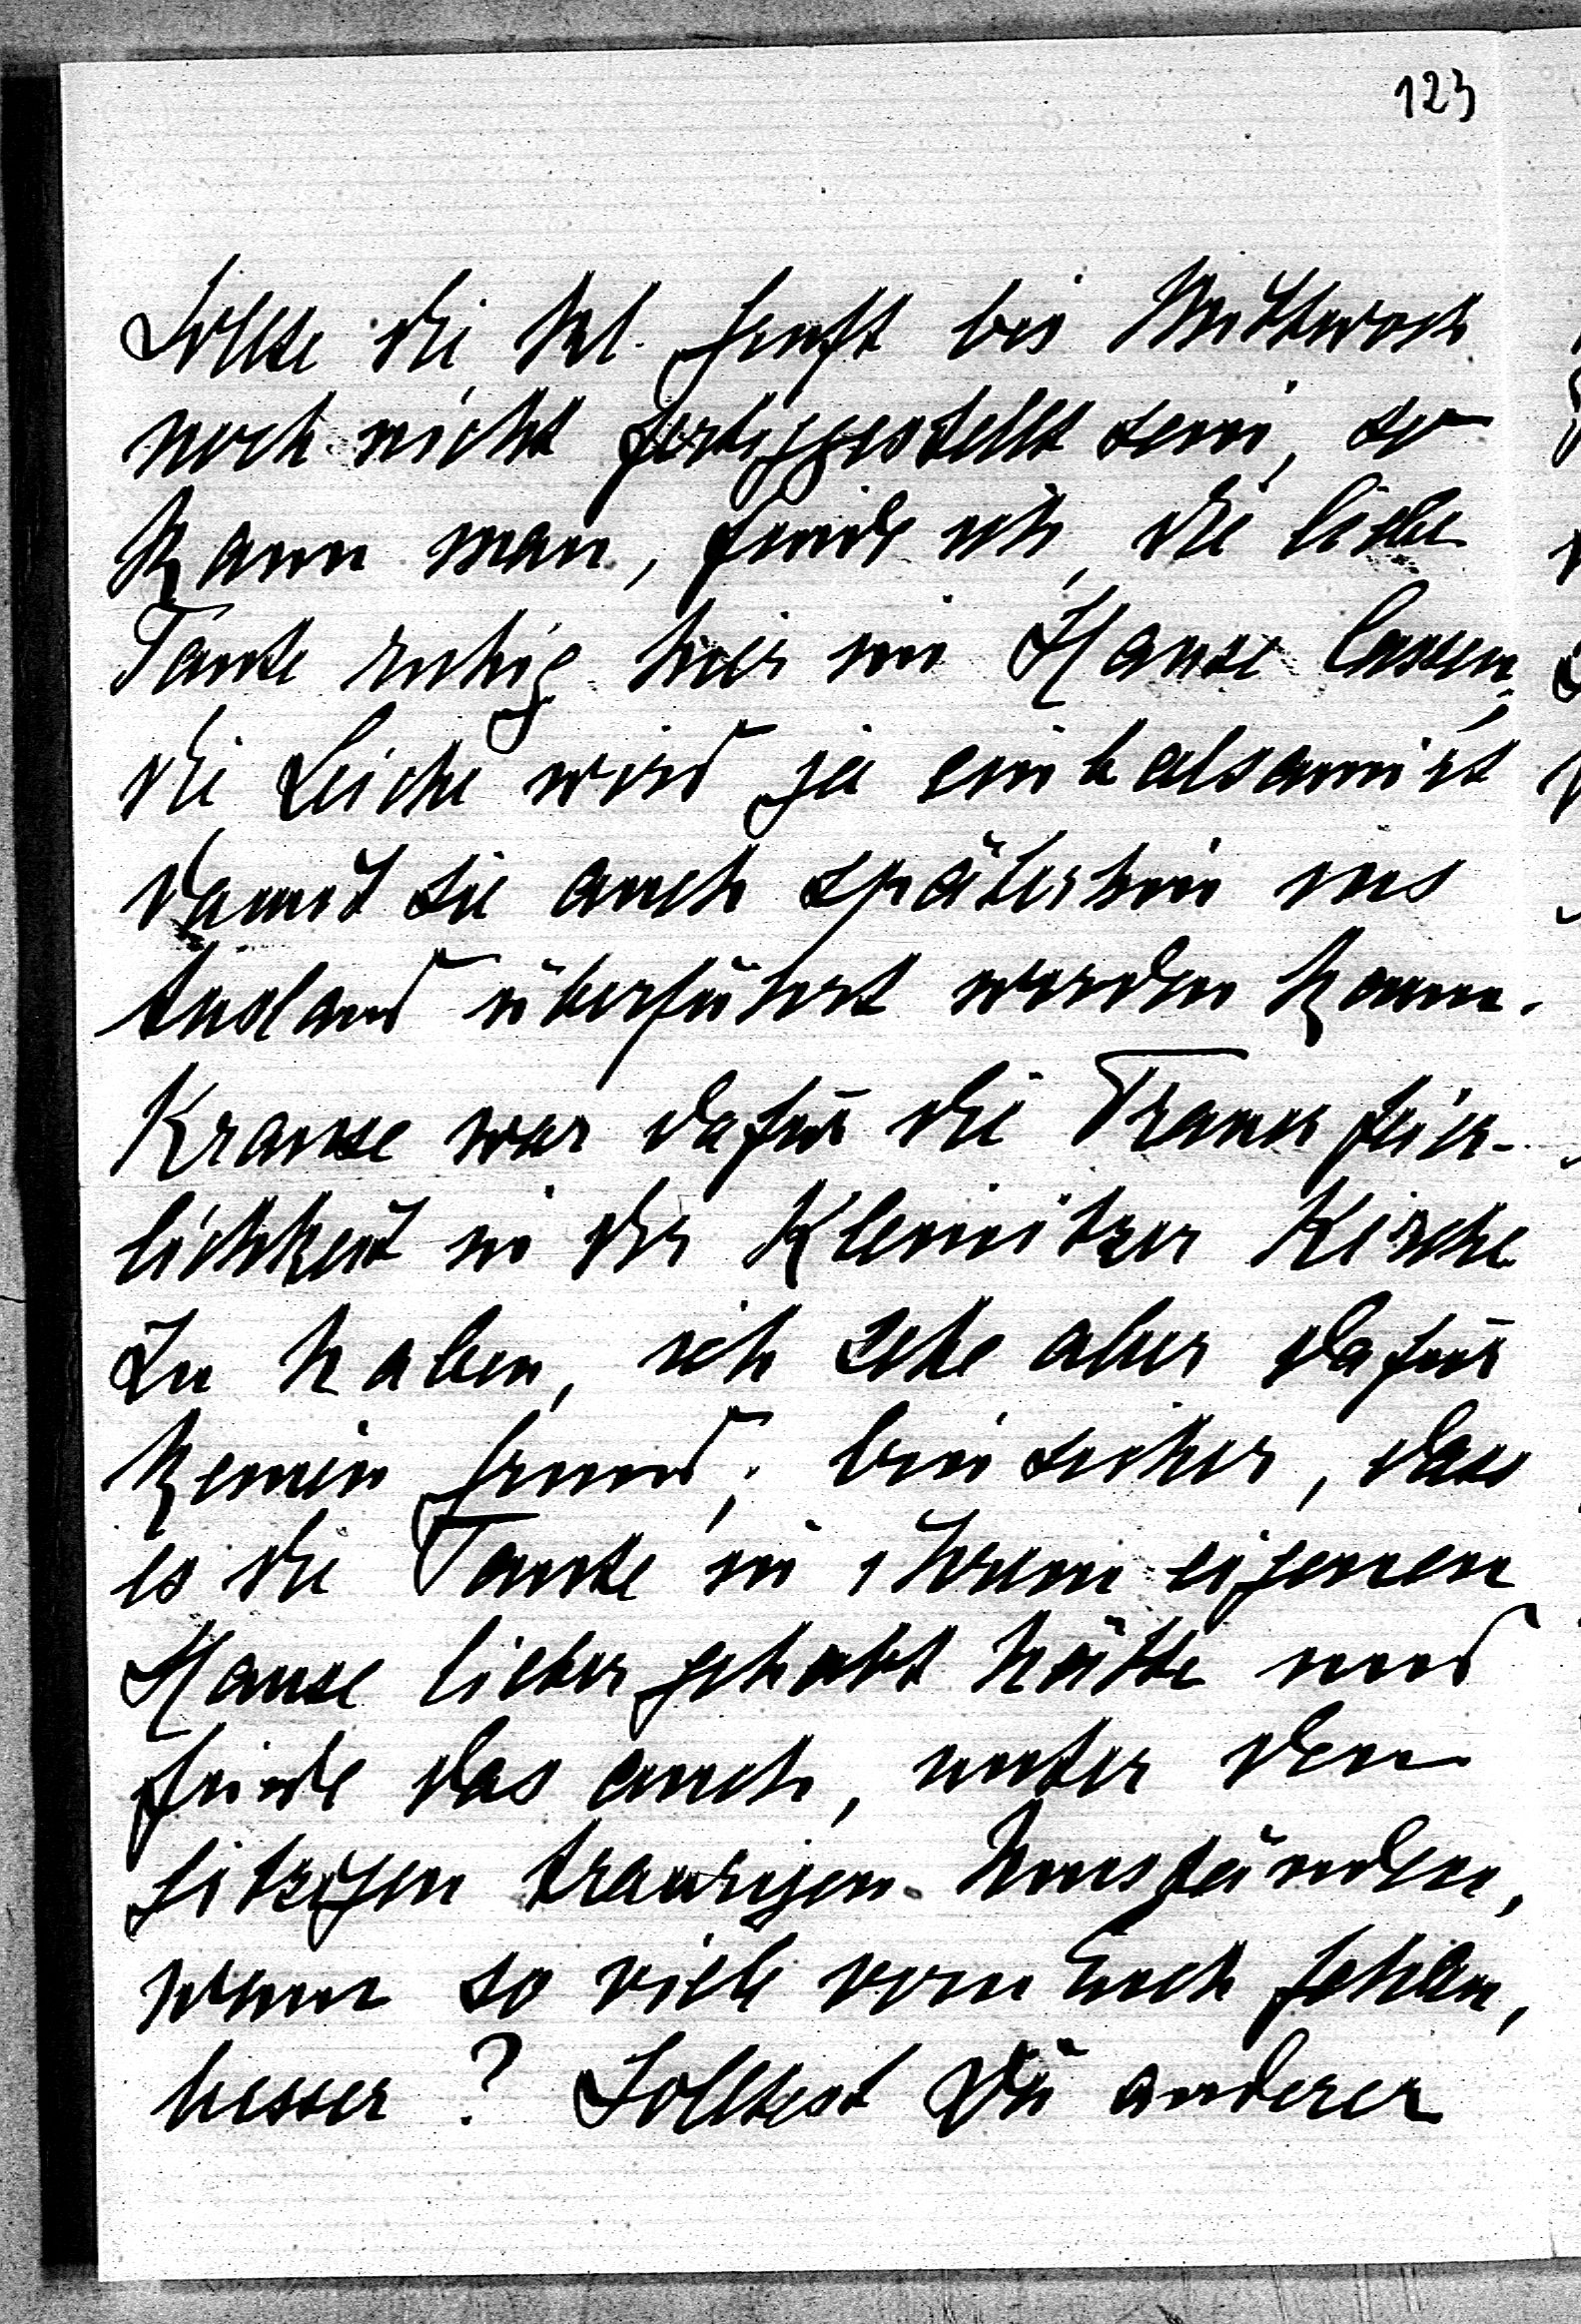 123
Sollte die kl. Gruft bis Mittwoch
noch nicht fertiggestellt sein, so
kann man, finde ich, die liebe
Tante ruhig hier im Hause lassen,
die Leiche wird ja einbalsamirt
damit sie auch späterhin ins
Ausland überführt werden kann.
Krause war dafür die Trauerfeier-
lichkeit in der Klemnitzer Kirche
zu haben, ich sehe aber dafür
keinen Grund, bin sicher, dass
es die Tante in ihrem eigenen
Hause lieber gehabt hätte und
finde das auch, unter den
jetzigen traurigen Umständen,
wenn so viele von Euch fehlen,
besser? Solltest Du anderer